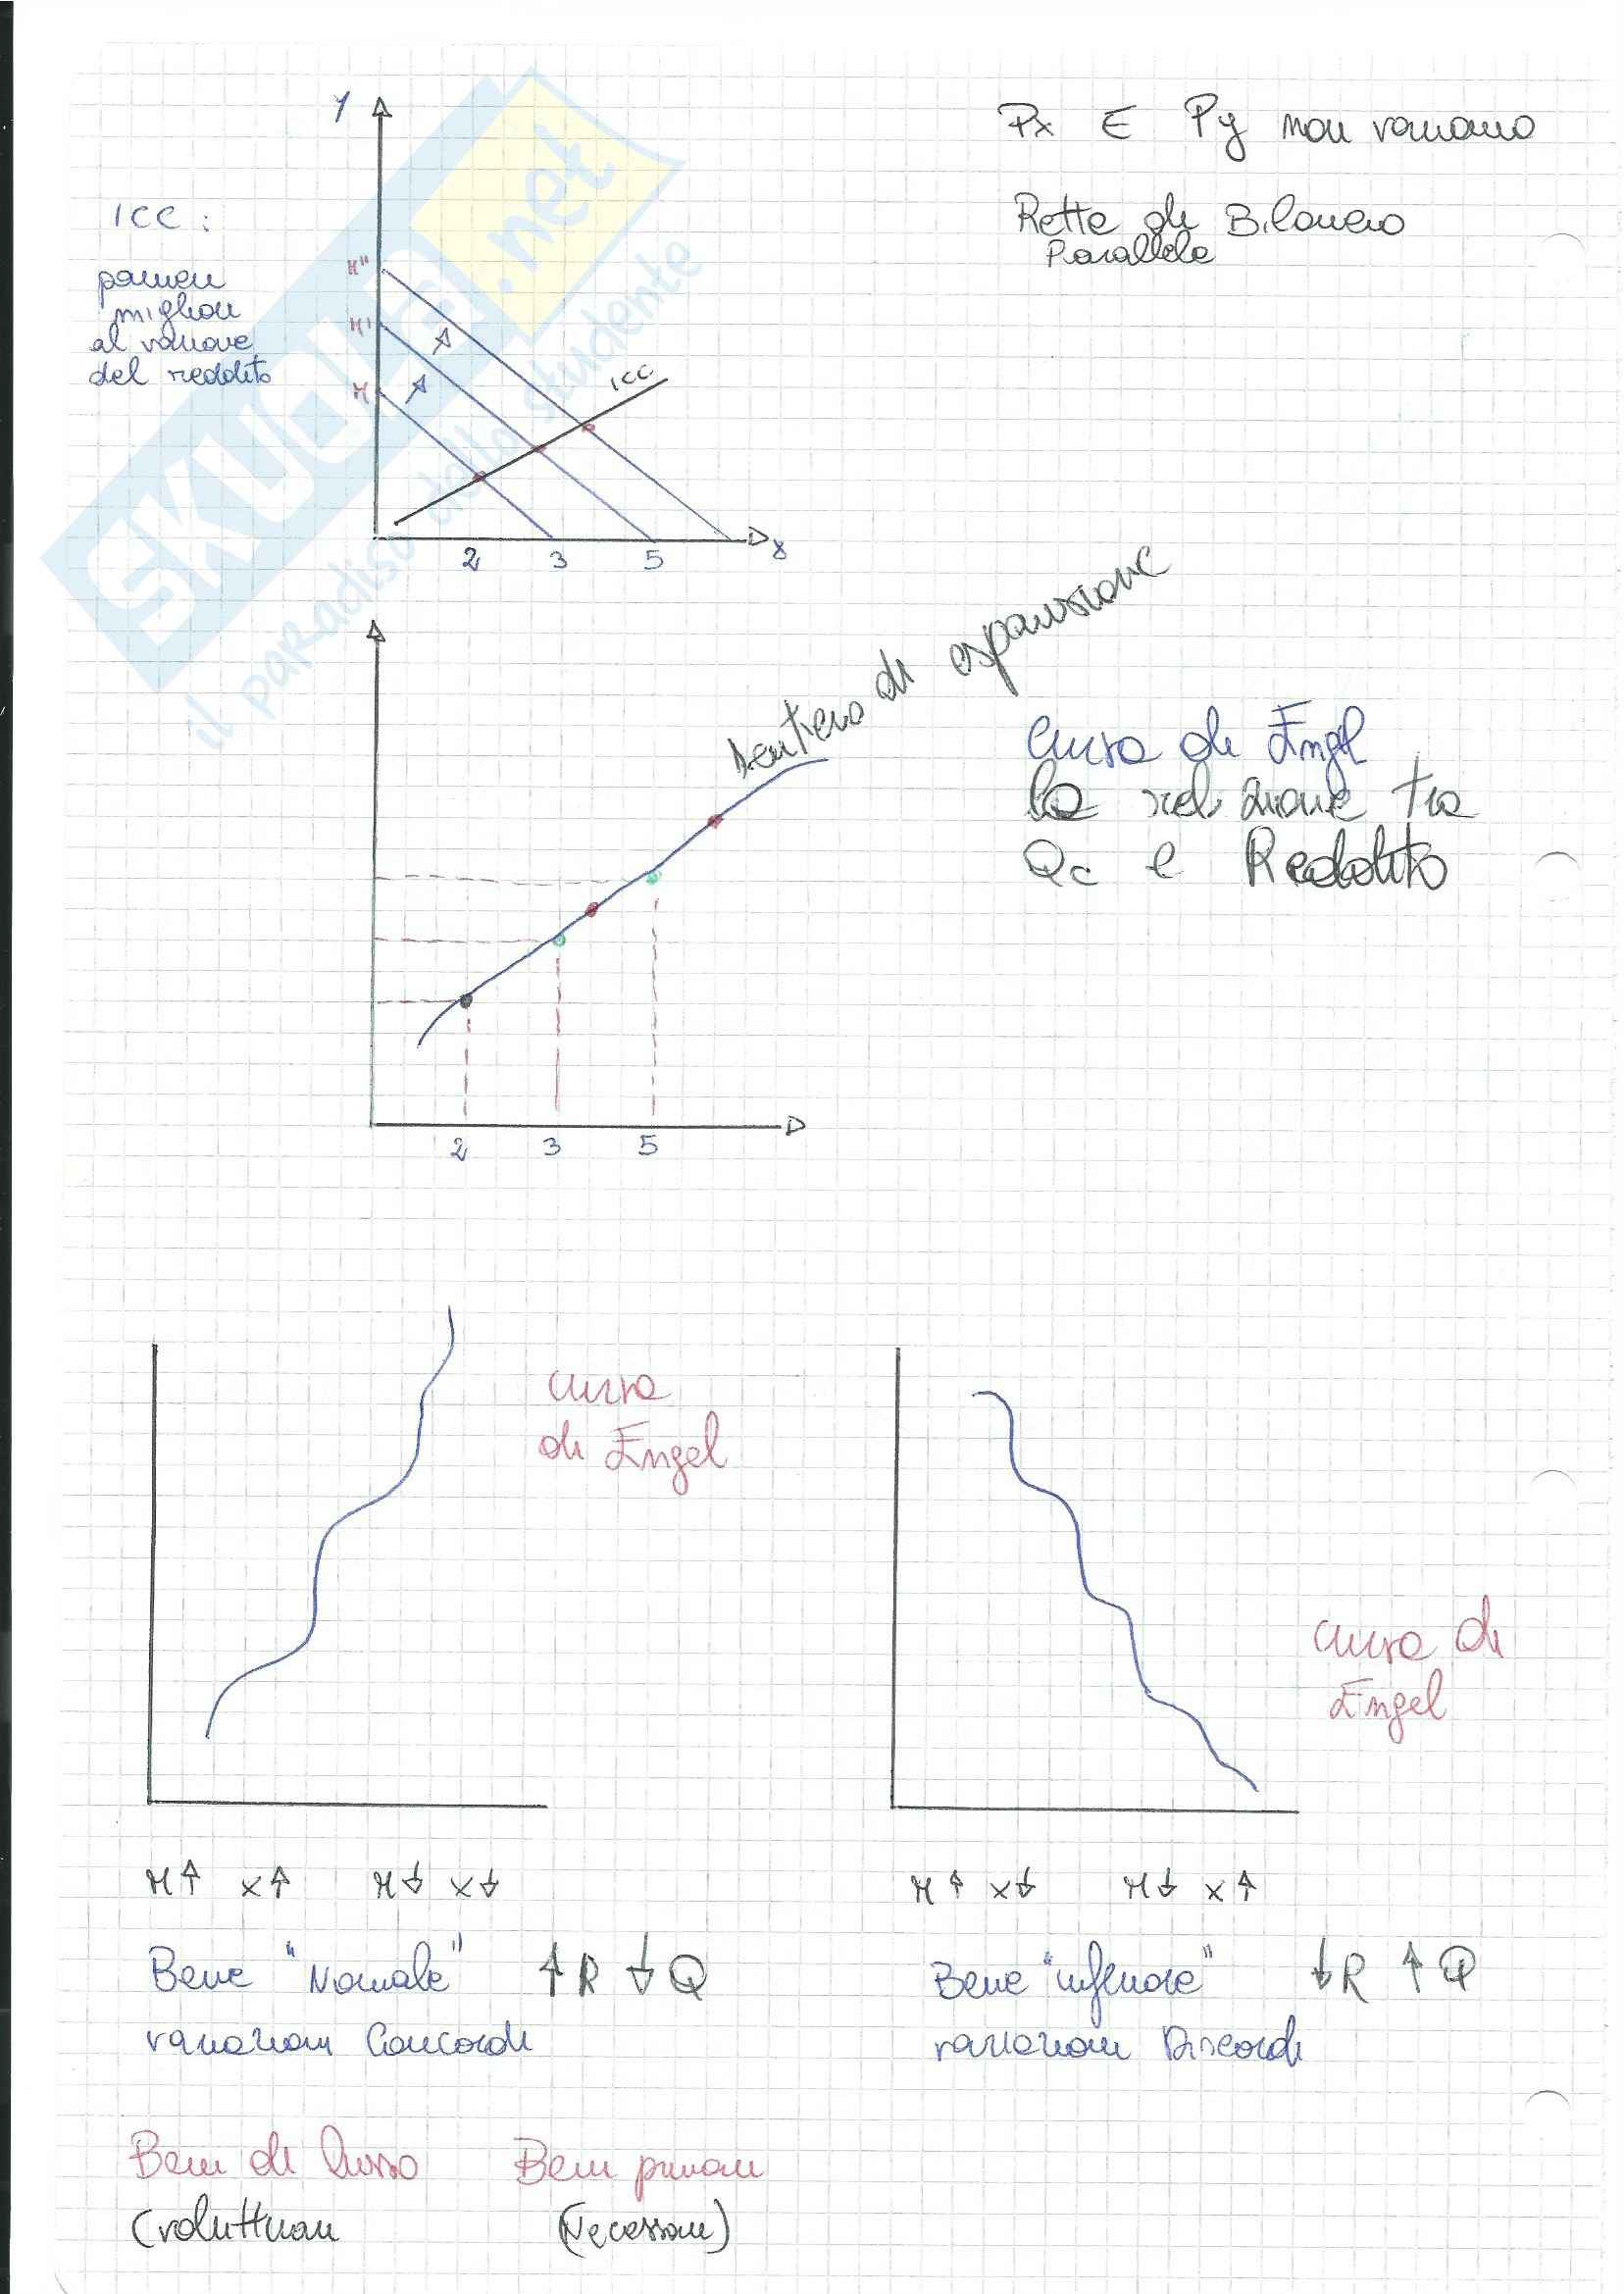 Y
Px E Py non variano
Rette di Bilancio
Parallele
ICC :
panieri
migliori
al variare
del reddito
M"
M'
M
ICC
2 3 5 x
sentiero di espansione
Curva di Engl
la relazione tra
Qc e Reddito
2 3 5
curva
di Engel
curva di
Engel
M↑ x↑ M↓ x↓
M↑ x↓ M↓ x↑
Bene "Normale" ↑R ↓Q
variazioni Concordi
Bene "inferiore" ↓R ↑Q
variazioni Discordi
Beni di lusso Beni primari
(voluttuari (Necessari)
SKUOLA.net
il paradiso dello studente